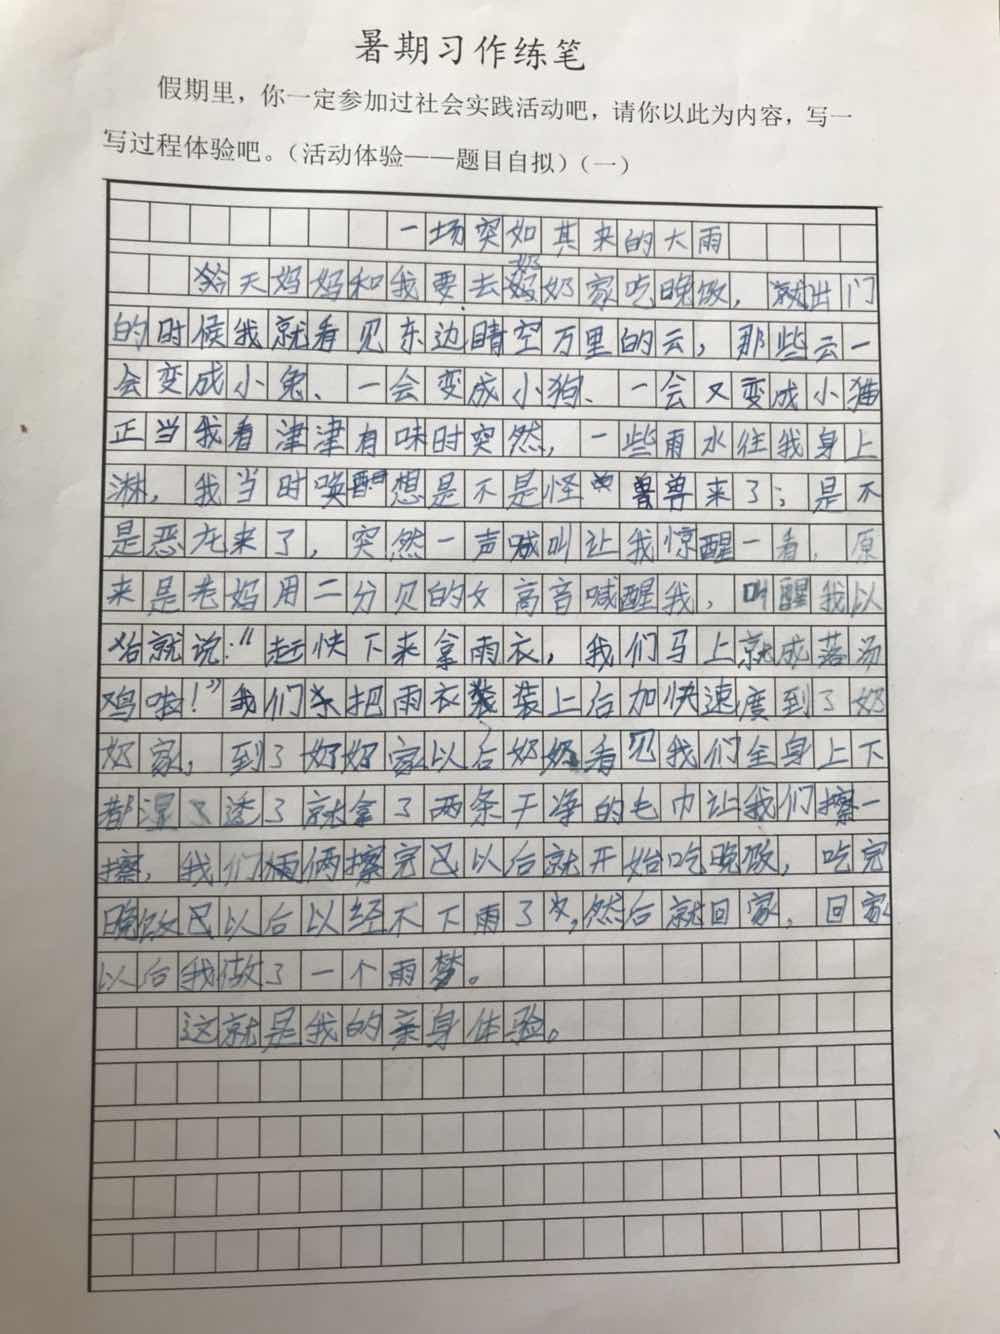 暑期习作练笔
假期里，你一定参加过社会实践活动吧，请你以此为内容，写一
写过程体验吧。（活动体验——题目自拟）（一）
一场突如其来的大雨
天妈妈和我要去奶奶家吃晚饭，就出门
的时候我就看见东边晴空万里的云，那些云一
会变成小兔、一会变成小狗、一会又变成小猫
正当我看津津有味时突然，一些雨水往我身上
淋，我当时唤醒想是不是怪兽兽来了；是不
是恶龙来了，突然一声喊叫让我惊醒一看，原
来是老妈用二分贝的女高音喊醒我，叫醒我以
后就说：“赶快下来拿雨衣，我们马上就成落汤
鸡啦！”我们把雨衣装上后加快速度到了奶
奶家，到了奶奶家以后奶奶看见我们全身上下
都湿透了就拿了两条干净的毛巾让我们擦一
擦，我们俩擦完已以后就开始吃晚饭，吃完
晚饭已以后以经不下雨了，然后就回家，回家
以后我做了一个雨梦。
这就是我的亲身体验。